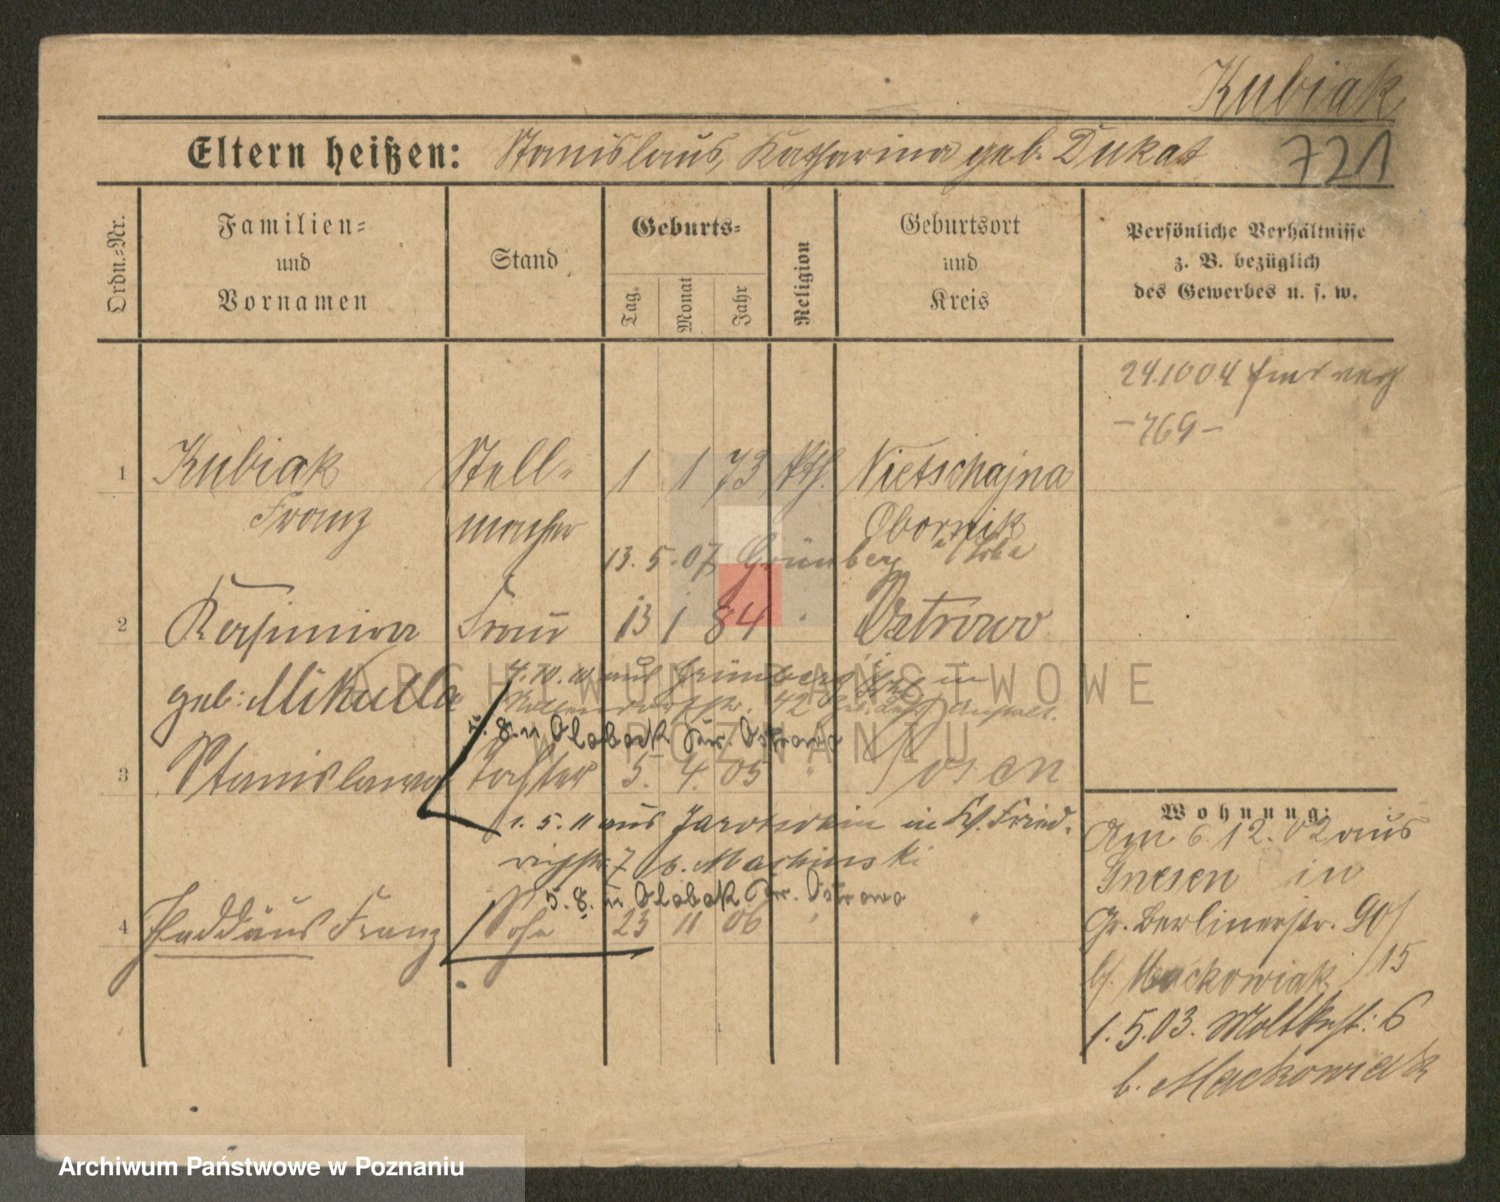 Kubiak
Eltern heißen: Stanislaus, Katharina geb. Dukat 721
Ordn.-Nr. Familien- und Vornamen Stand Geburts- Tag. Monat Jahr Religion Geburtsort und Kreis Persönliche Verhältnisse z. B. bezüglich des Gewerbes u. s. w.
24.10 04
-769-
1 Kubiak Stell- 1 1 73 kth. Nietschajna
Franz macher Obornik
13. 5. 07 Grünberg
2 Kasimira Frau 13 1 84 " Ostrowo
geb: Mikulla
7. 10. 10 aus Grünberg in
5. 8. 11 Olobock Kr. Ostrowo
3 Stanislawa Tochter 5. 4. 05 " Posen
1. 5. 11 aus Jarotschin in Fried-
richstr. 7 b. Machinski
5. 8. 11 Olobok Kr. Ostrowo
4 Thaddäus Franz Sohn 23 11 06 " "
Wohnung:
Am 6. 12. 02 aus
Gnesen in
Gr. Berlinerstr. 90/
b/ Mackowiak /15
1. 5. 03. Moltkestr: 6
b. Mackowiak
ARCHIWUM PAŃSTWOWE
W POZNANIU
Archiwum Państwowe w Poznaniu